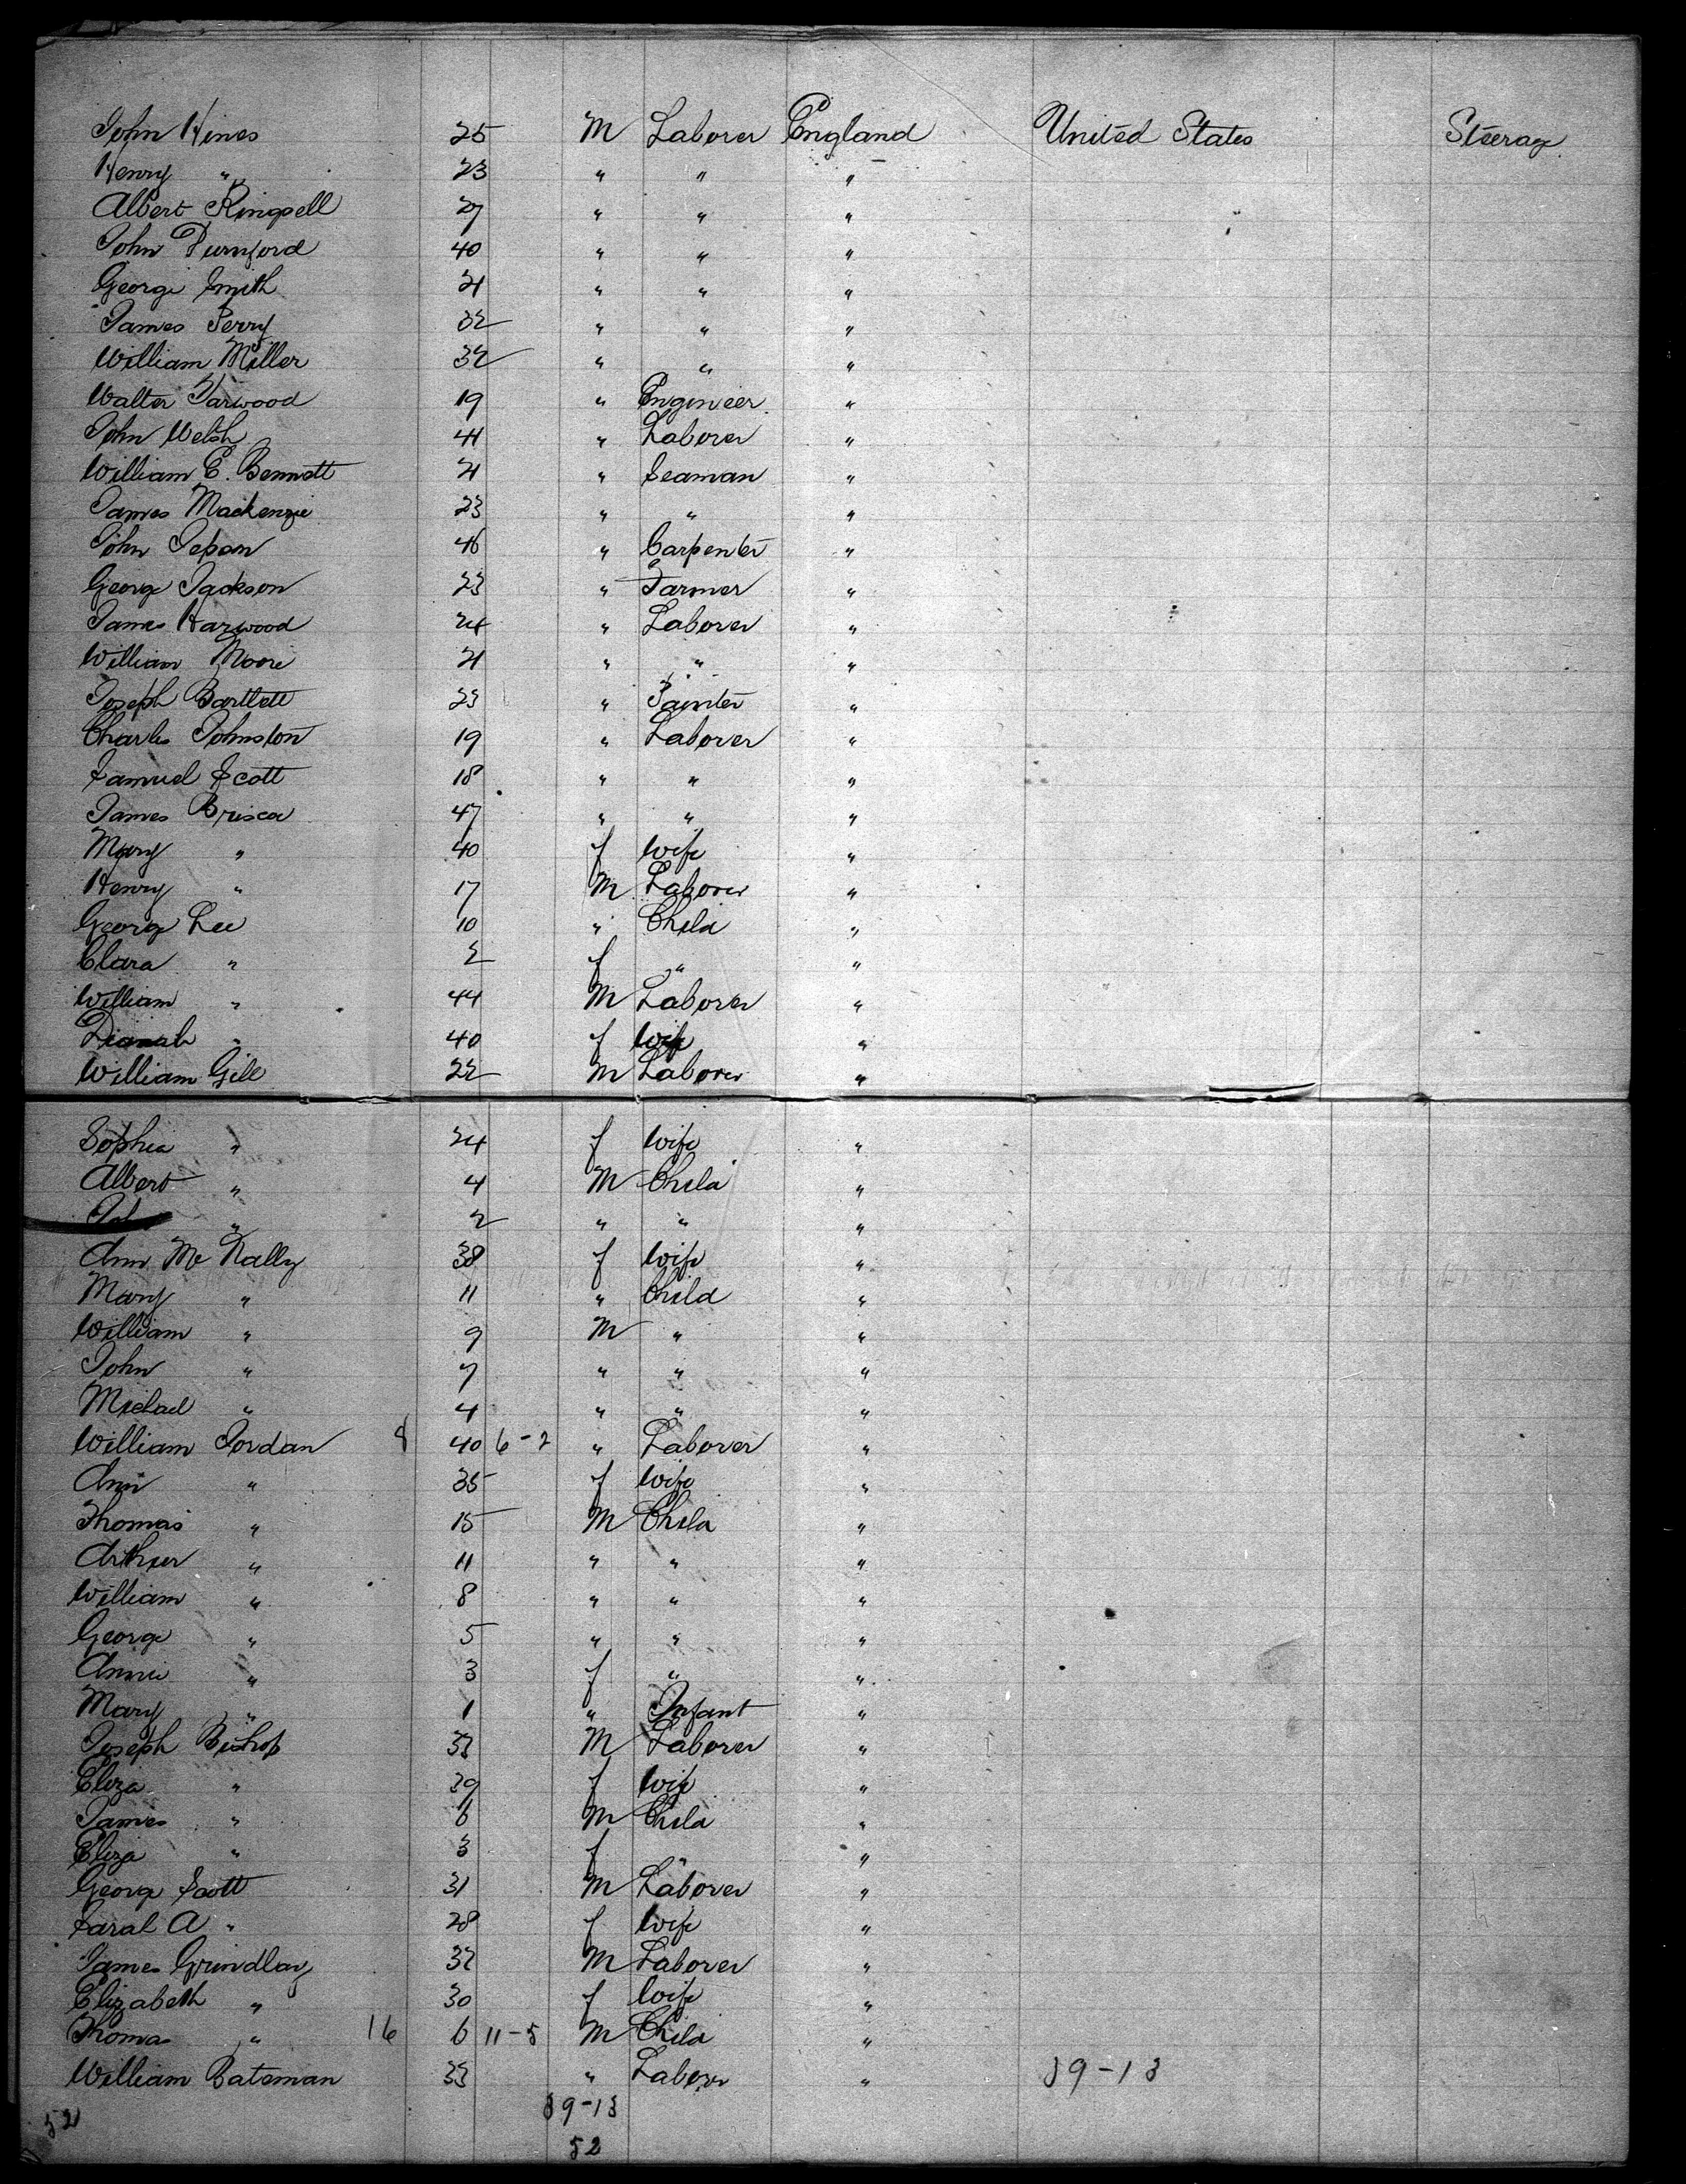 John Hines 25 M Laborer England United States Steerage
Henry " 23 " " "
Albert Kingsell 27 " " "
John Durnford 40 " " "
George Smith 21 " " "
James Perry 32 " " "
William Miller 32 " " "
Walter Harwood 19 " Engineer "
John Welsh 41 " Laborer "
William E. Bennett 21 " Seaman "
James Mackenzie 23 " " "
John 46 " Carpenter "
George Jackson 23 " Farmer "
James Harwood 24 " Laborer "
William Moore 21 " " "
Joseph Bartlett 23 " Painter "
Charles Johnston 19 " Laborer "
Samuel Scott 18 " " "
James Brisco 47 " " "
Mary " 40 f wife "
Henry " 17 M Laborer "
George Lee 10 " Child "
Clara " 2 f " "
William " 44 M Laborer "
Dianah " 40 f wife "
William Gill 22 M Laborer "
Sophia " 24 f wife "
Albert " 4 M Child "
John " 2 " " "
Ann Mc Nally 38 f wife "
Mary " 11 " Child "
William " 9 M " "
John " 7 " " "
Michael " 4 " " "
William Jordan 8 40 6-2 " Laborer "
Ann " 35 f wife "
Thomas " 15 M Child "
Arthur " 11 " " "
William " 8 " " "
George " 5 " " "
Annie " 3 f " "
Mary " 1 " Infant "
Joseph Bishop 33 M Laborer "
Eliza " 29 f wife "
James " 6 M Child "
Eliza " 3 f " "
George Scott 31 M Laborer "
Sarah A " 28 f wife "
James Grindlay 32 M Laborer "
Elizabeth " 30 f wife "
Thomas " 16 6 11-5 M Child "
William Bateman 33 " Laborer " 39-13
39-13
52 52